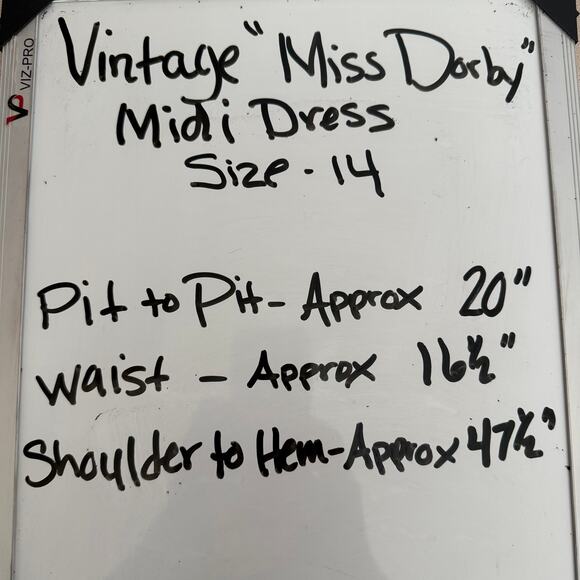 VP VIZ-PRO
Vintage "Miss Dorby"
Midi Dress
Size - 14
Pit to Pit - Approx 20"
Waist - Approx 16½"
Shoulder to Hem - Approx 47½"